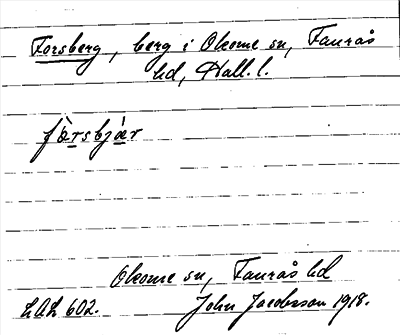 Forsberg, berg i Okome sn, Faurås
hd, Hall. l.
fàrsbjàr
Okome sn, Faurås hd
LAL 602. John Jacobsson 1918.